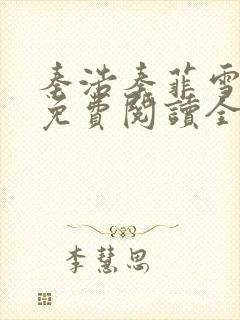 秦浩秦菲雪
免費閱讀全
李慧思